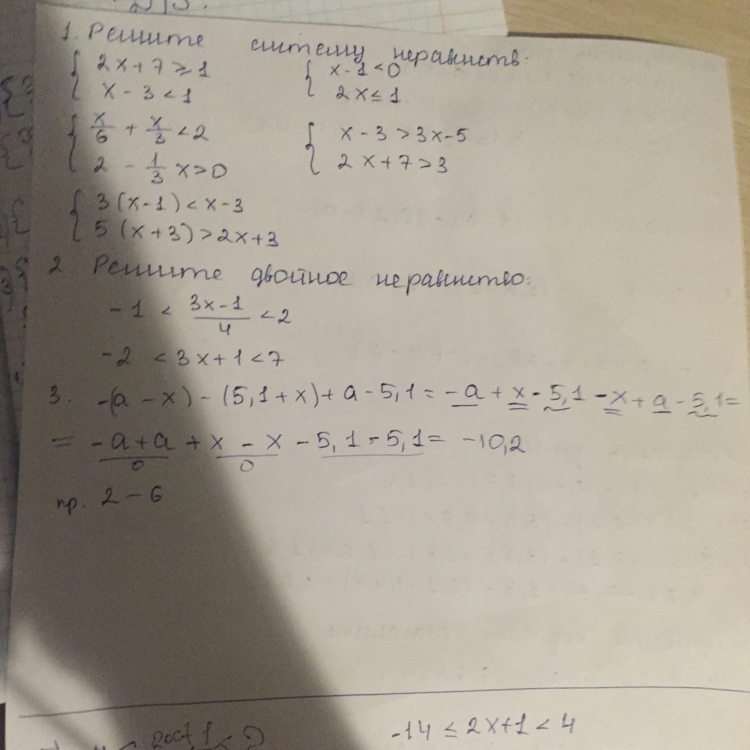 1. Решите систему неравинств:
{ 2x+7 ≥ 1    { x-1 < 0
x - 3 < 1    2x ≤ 1
{ x/6 + x/3 < 2    { x - 3 > 3x - 5
2 - 1/3 x > 0    2x + 7 > 3
{ 3(x-1) < x-3
5(x+3) > 2x+3
2 Решите двойное неравинство:
-1 < (3x-1)/4 < 2
-2 < 3x+1 < 7
3. -(a - x) - (5,1 + x) + a - 5,1 = -a + x - 5,1 - x + a - 5,1 =
= -a + a + x - x - 5,1 - 5,1 = -10,2
0 0
пр. 2 - 6
-14 ≤ 2x+1 < 4